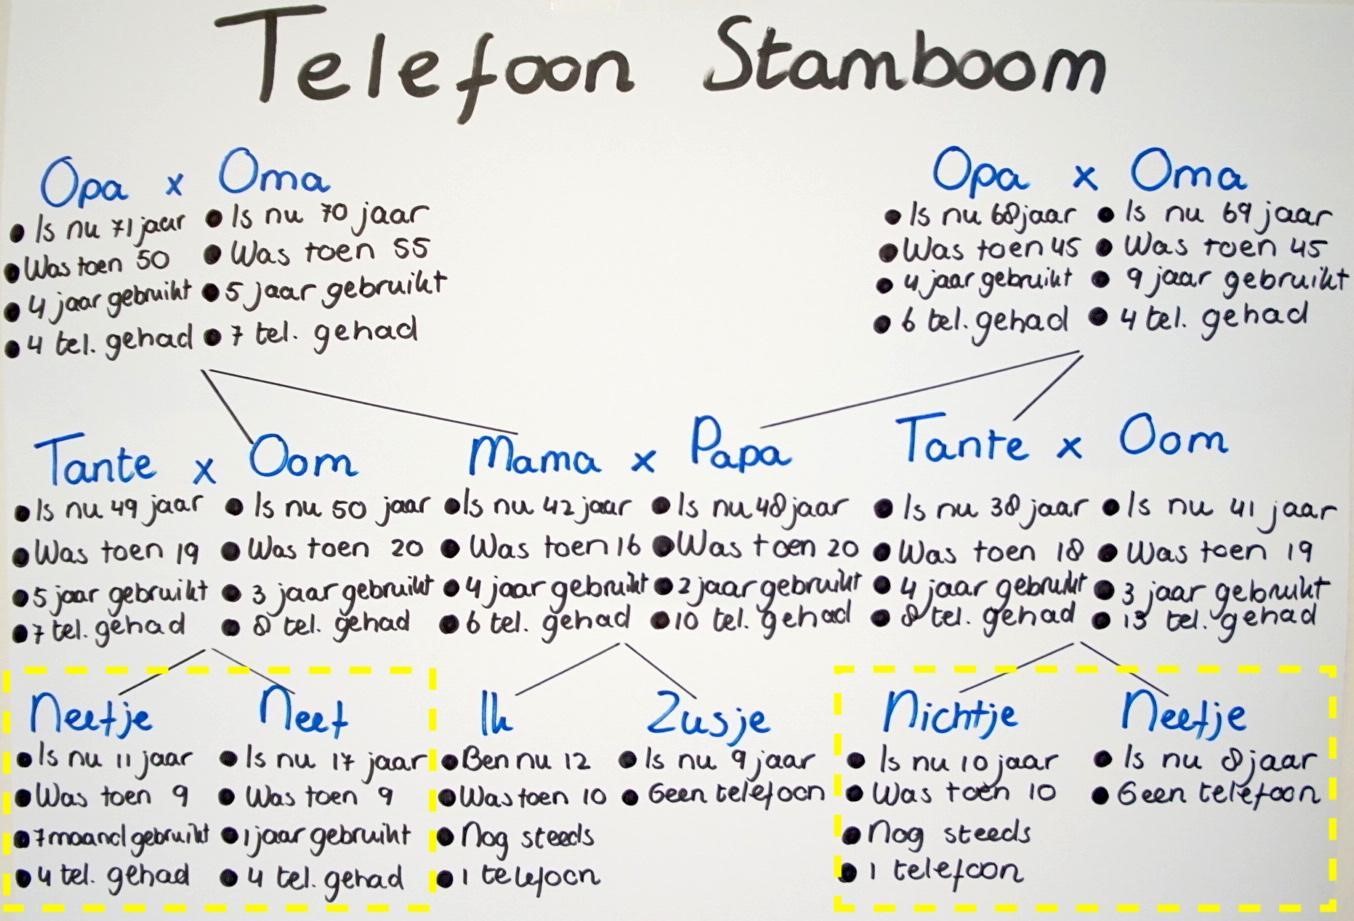 Telefoon Stamboom
Opa x Oma
• Is nu 71 jaar • Is nu 70 jaar
• Was toen 50 • Was toen 55
• 4 jaar gebruikt • 5 jaar gebruikt
• 4 tel. gehad • 7 tel. gehad
Opa x Oma
• Is nu 68 jaar • Is nu 69 jaar
• Was toen 45 • Was toen 45
• 4 jaar gebruikt • 9 jaar gebruikt
• 6 tel. gehad • 4 tel. gehad
Tante x Oom
• Is nu 49 jaar • Is nu 50 jaar
• Was toen 19 • Was toen 20
• 5 jaar gebruikt • 3 jaar gebruikt
• 7 tel. gehad • 8 tel. gehad
Mama x Papa
• Is nu 42 jaar • Is nu 48 jaar
• Was toen 16 • Was toen 20
• 4 jaar gebruikt • 2 jaar gebruikt
• 6 tel. gehad • 10 tel. gehad
Tante x Oom
• Is nu 38 jaar • Is nu 41 jaar
• Was toen 18 • Was toen 19
• 4 jaar gebruikt • 3 jaar gebruikt
• 8 tel. gehad • 13 tel. gehad
Neefje Neef
• Is nu 11 jaar • Is nu 17 jaar
• Was toen 9 • Was toen 9
• 7 maand gebruikt • 1 jaar gebruikt
• 4 tel. gehad • 4 tel. gehad
Ik Zusje
• Ben nu 12 • Is nu 9 jaar
• Was toen 10 • Geen telefoon
• Nog steeds
• 1 telefoon
Nichtje Neefje
• Is nu 10 jaar • Is nu 8 jaar
• Was toen 10 • Geen telefoon
• Nog steeds
• 1 telefoon